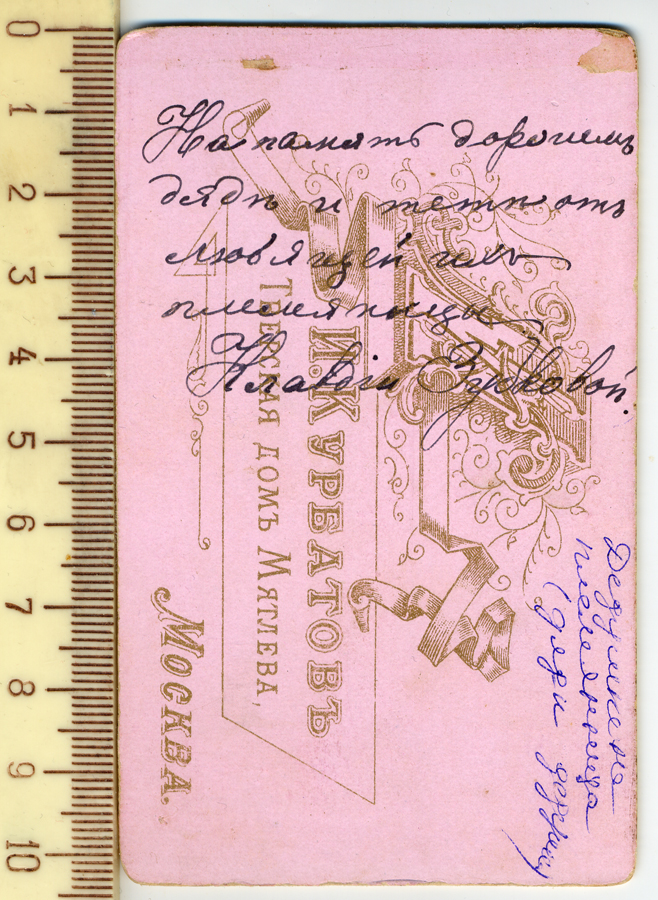 На память дорогимъ
дядѣ и тетѣ отъ
любящей ихъ
племянницы
Клавдіи Зубковой.
И. Курбатовъ
Тверская домъ Мятлева,
Москва.
Дедушкина
племянница
(дяди
0
1
2
3
4
5
6
7
8
9
10